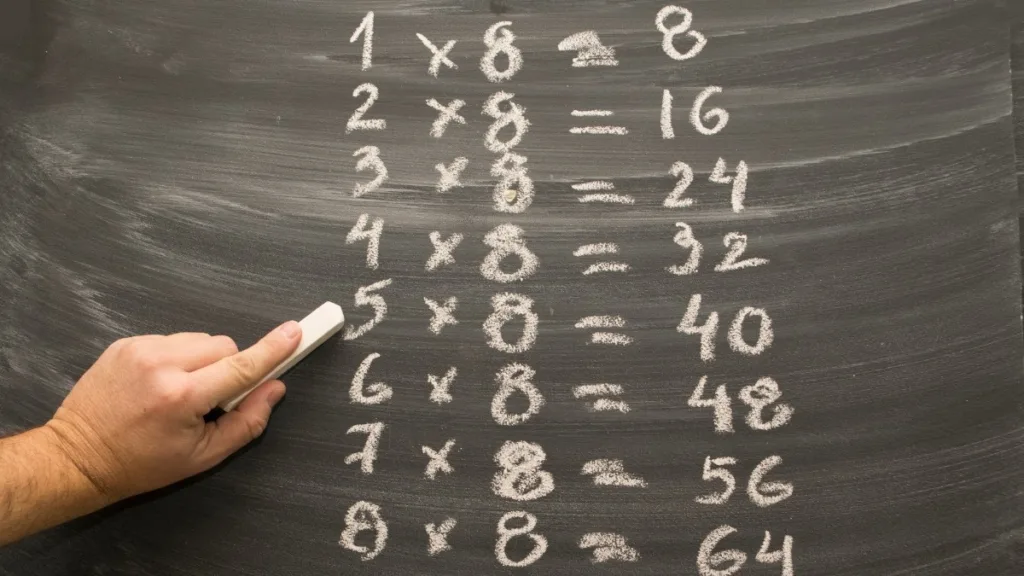 1 × 8 = 8
2 × 8 = 16
3 × 8 = 24
4 × 8 = 32
5 × 8 = 40
6 × 8 = 48
7 × 8 = 56
8 × 8 = 64